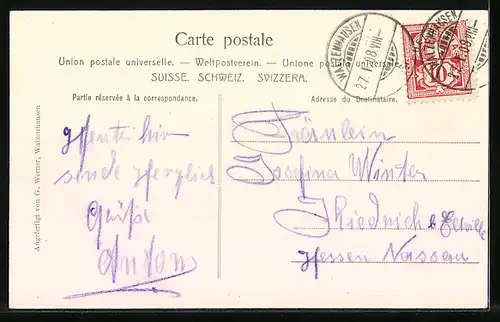 Carte postale
Union postale universelle. — Weltpostverein. — Unione postale universale.
SUISSE. SCHWEIZ. SVIZZERA.
Partie réservée à la correspondance.
Adresse du Destinataire.
WALZENHAUSEN
27. VIII
WALZENHAUSEN
27. VIII
10
hier
sende Herzliche
Grüße
Anton
Fräulein
Josefina Winter
Kiedrich b Eltville
Hessen Nassau
Angefertigt von G. Werner, Walzenhausen